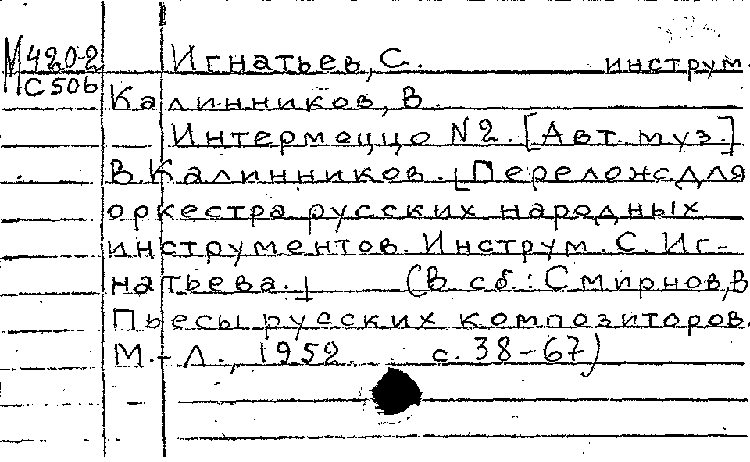 М420-2 Игнатьев, С. инструм.
С506
Калинников, В.
Интермеццо N2. [Авт. муз.]
В. Калинников. [Перелож. для
оркестра русских народных
инструментов. Инструм. С. Иг-
натьева.] (В сб.: Смирнов, В
Пьесы русских композиторов.
М.-Л., 1952. с. 38-67)